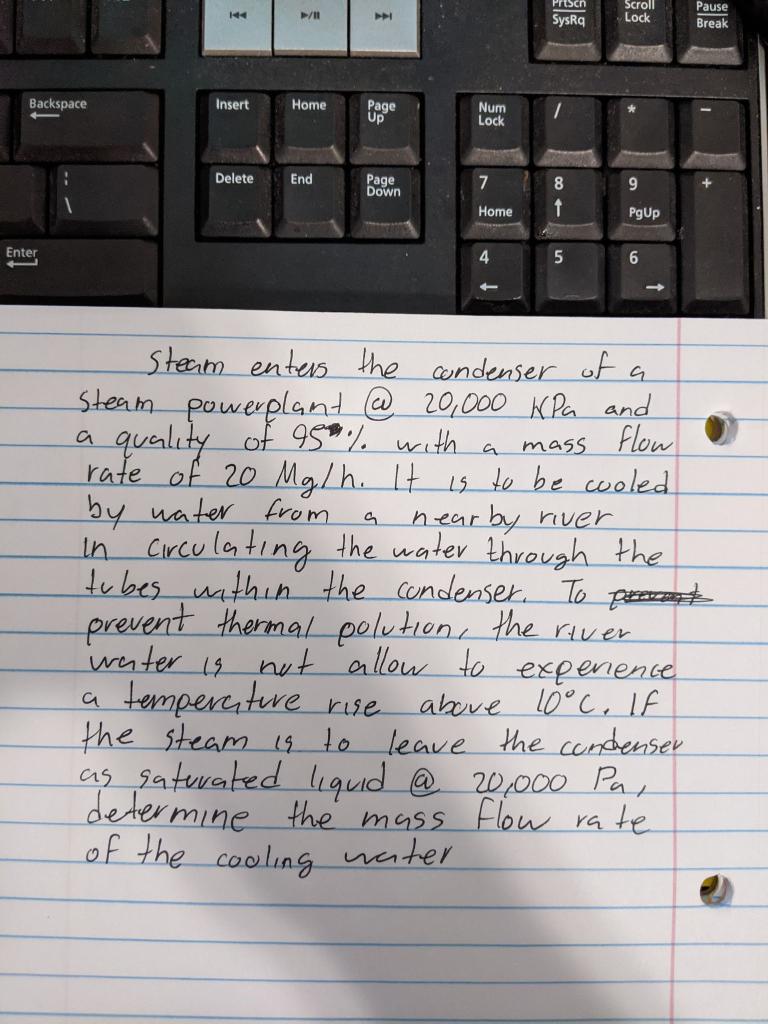 PrtScn
SysRq
Scroll
Lock
Pause
Break
Backspace
Insert
Home
Page
Up
Num
Lock
/
*
-
Delete
End
Page
Down
7
Home
8
9
PgUp
+
\
Enter
4
5
6
Steam enters the condenser of a
steam powerplant @ 20,000 KPa and
a quality of 95% with a mass flow
rate of 20 Mg/h. It is to be cooled
by water from a nearby river
in circulating the water through the
tubes within the condenser. To prevent
prevent thermal polution, the river
water is not allow to experience
a temperature rise above 10°C. If
the steam is to leave the condenser
as saturated liquid @ 20,000 Pa,
determine the mass flow rate
of the cooling water